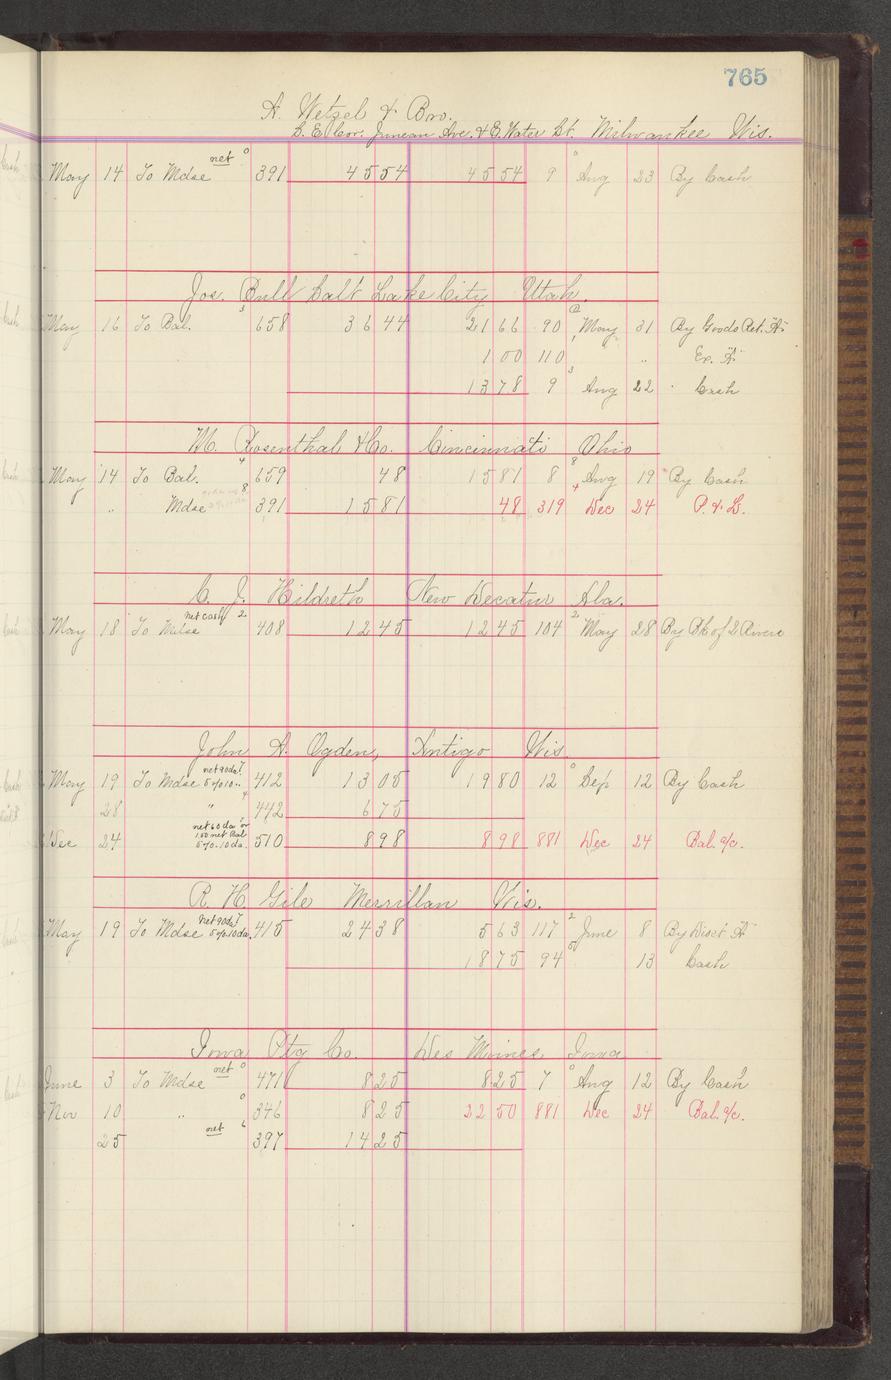 765
A. Wetzel & Bro.
S. E. Cor. Juneau Ave. & E. Water St. Milwaukee Wis.
May 14 To Mdse net 0 391 45 54 45 54 9 0 Aug 23 By Cash
Jos. Bull Salt Lake City Utah.
May 16 To Bal. 3 658 36 44 21 66 90 May 31 By Goods Ret. "A"
1 00 110 1 " Ex. "A"
13 78 9 3 Aug 22 " Cash
M. Rosenthal & Co. Cincinnati Ohio
May 14 To Bal. 4 659 48 15 81 8 8 Aug 19 By Cash
" Mdse 8 391 15 81 48 319 4 Dec 24 P. & L.
C. J. Hildreth New Decatur Ala.
May 18 To Mdse net cash 2 408 12 45 12 45 104 2 May 28 By Bk of 2 Rivers
John A. Ogden, Antigo Wis.
May 19 To Mdse net 90 da. 5% 10 " 412 13 05 19 80 12 0 Sep 12 By Cash
28 " 442 6 75
Dec 24 net 60 da or 1.50 net Bal 5% 10 da. 510 8 98 8 98 881 Dec 24 Bal. a/c.
R. H. Gile Merrillan Wis.
May 19 To Mdse net 90 da. 5% 10 da. 415 24 38 5 63 117 2 June 8 By Disct "A"
18 75 94 13 Cash
Iowa Ptg Co. Des Moines, Iowa
June 3 To Mdse net 0 471 8 25 8 25 7 0 Aug 12 By Cash
Nov 10 " 0 346 8 25 22 50 881 Dec 24 Bal. a/c.
25 net 6 397 14 25